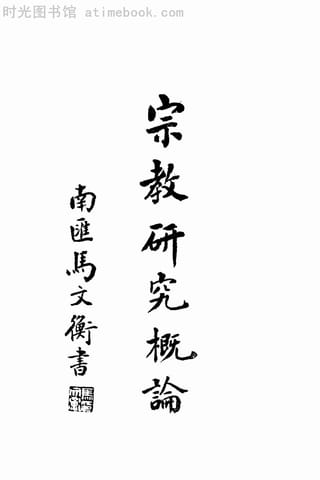 时光图书馆 atimebook.com
宗教研究概論
南匯馬文衡書